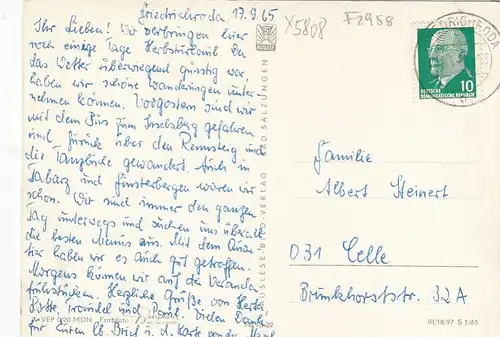 Friedrichroda 17.9.65
Ihr Lieben! Wir verbringen hier
noch einige Tage Herbsturlaub. Da
das Wetter überwiegend günstig war,
haben wir schöne Wanderungen unter-
nehmen können. Vorgestern sind wir
mit dem Bus zum Inselsberg gefahren
und zurück über den Rennsteig und
die Tanzbuche gewandert. Auch in
Tabarz und Finsterbergen waren wir
schon. Wir sind immer den ganzen
Tag unterwegs und suchen uns überall
die besten Menüs aus. Mit dem Quar-
tier haben wir es auch gut getroffen.
Morgens können wir auf der Veranda
frühstücken. Herzliche Grüße von
Traudel und Vielen Dank
für Euren lb. Brief u. d. Karte von der
X5808
F2988
DEUTSCHE
DEMOKRATISCHE REPUBLIK
10
Familie
Albert Steinert
031 Celle
Brunkhorststr. 32A
VERLAG BAD SALZUNGEN
VEP 0,20 MDN Farbfoto
III/18/97 S 1/65